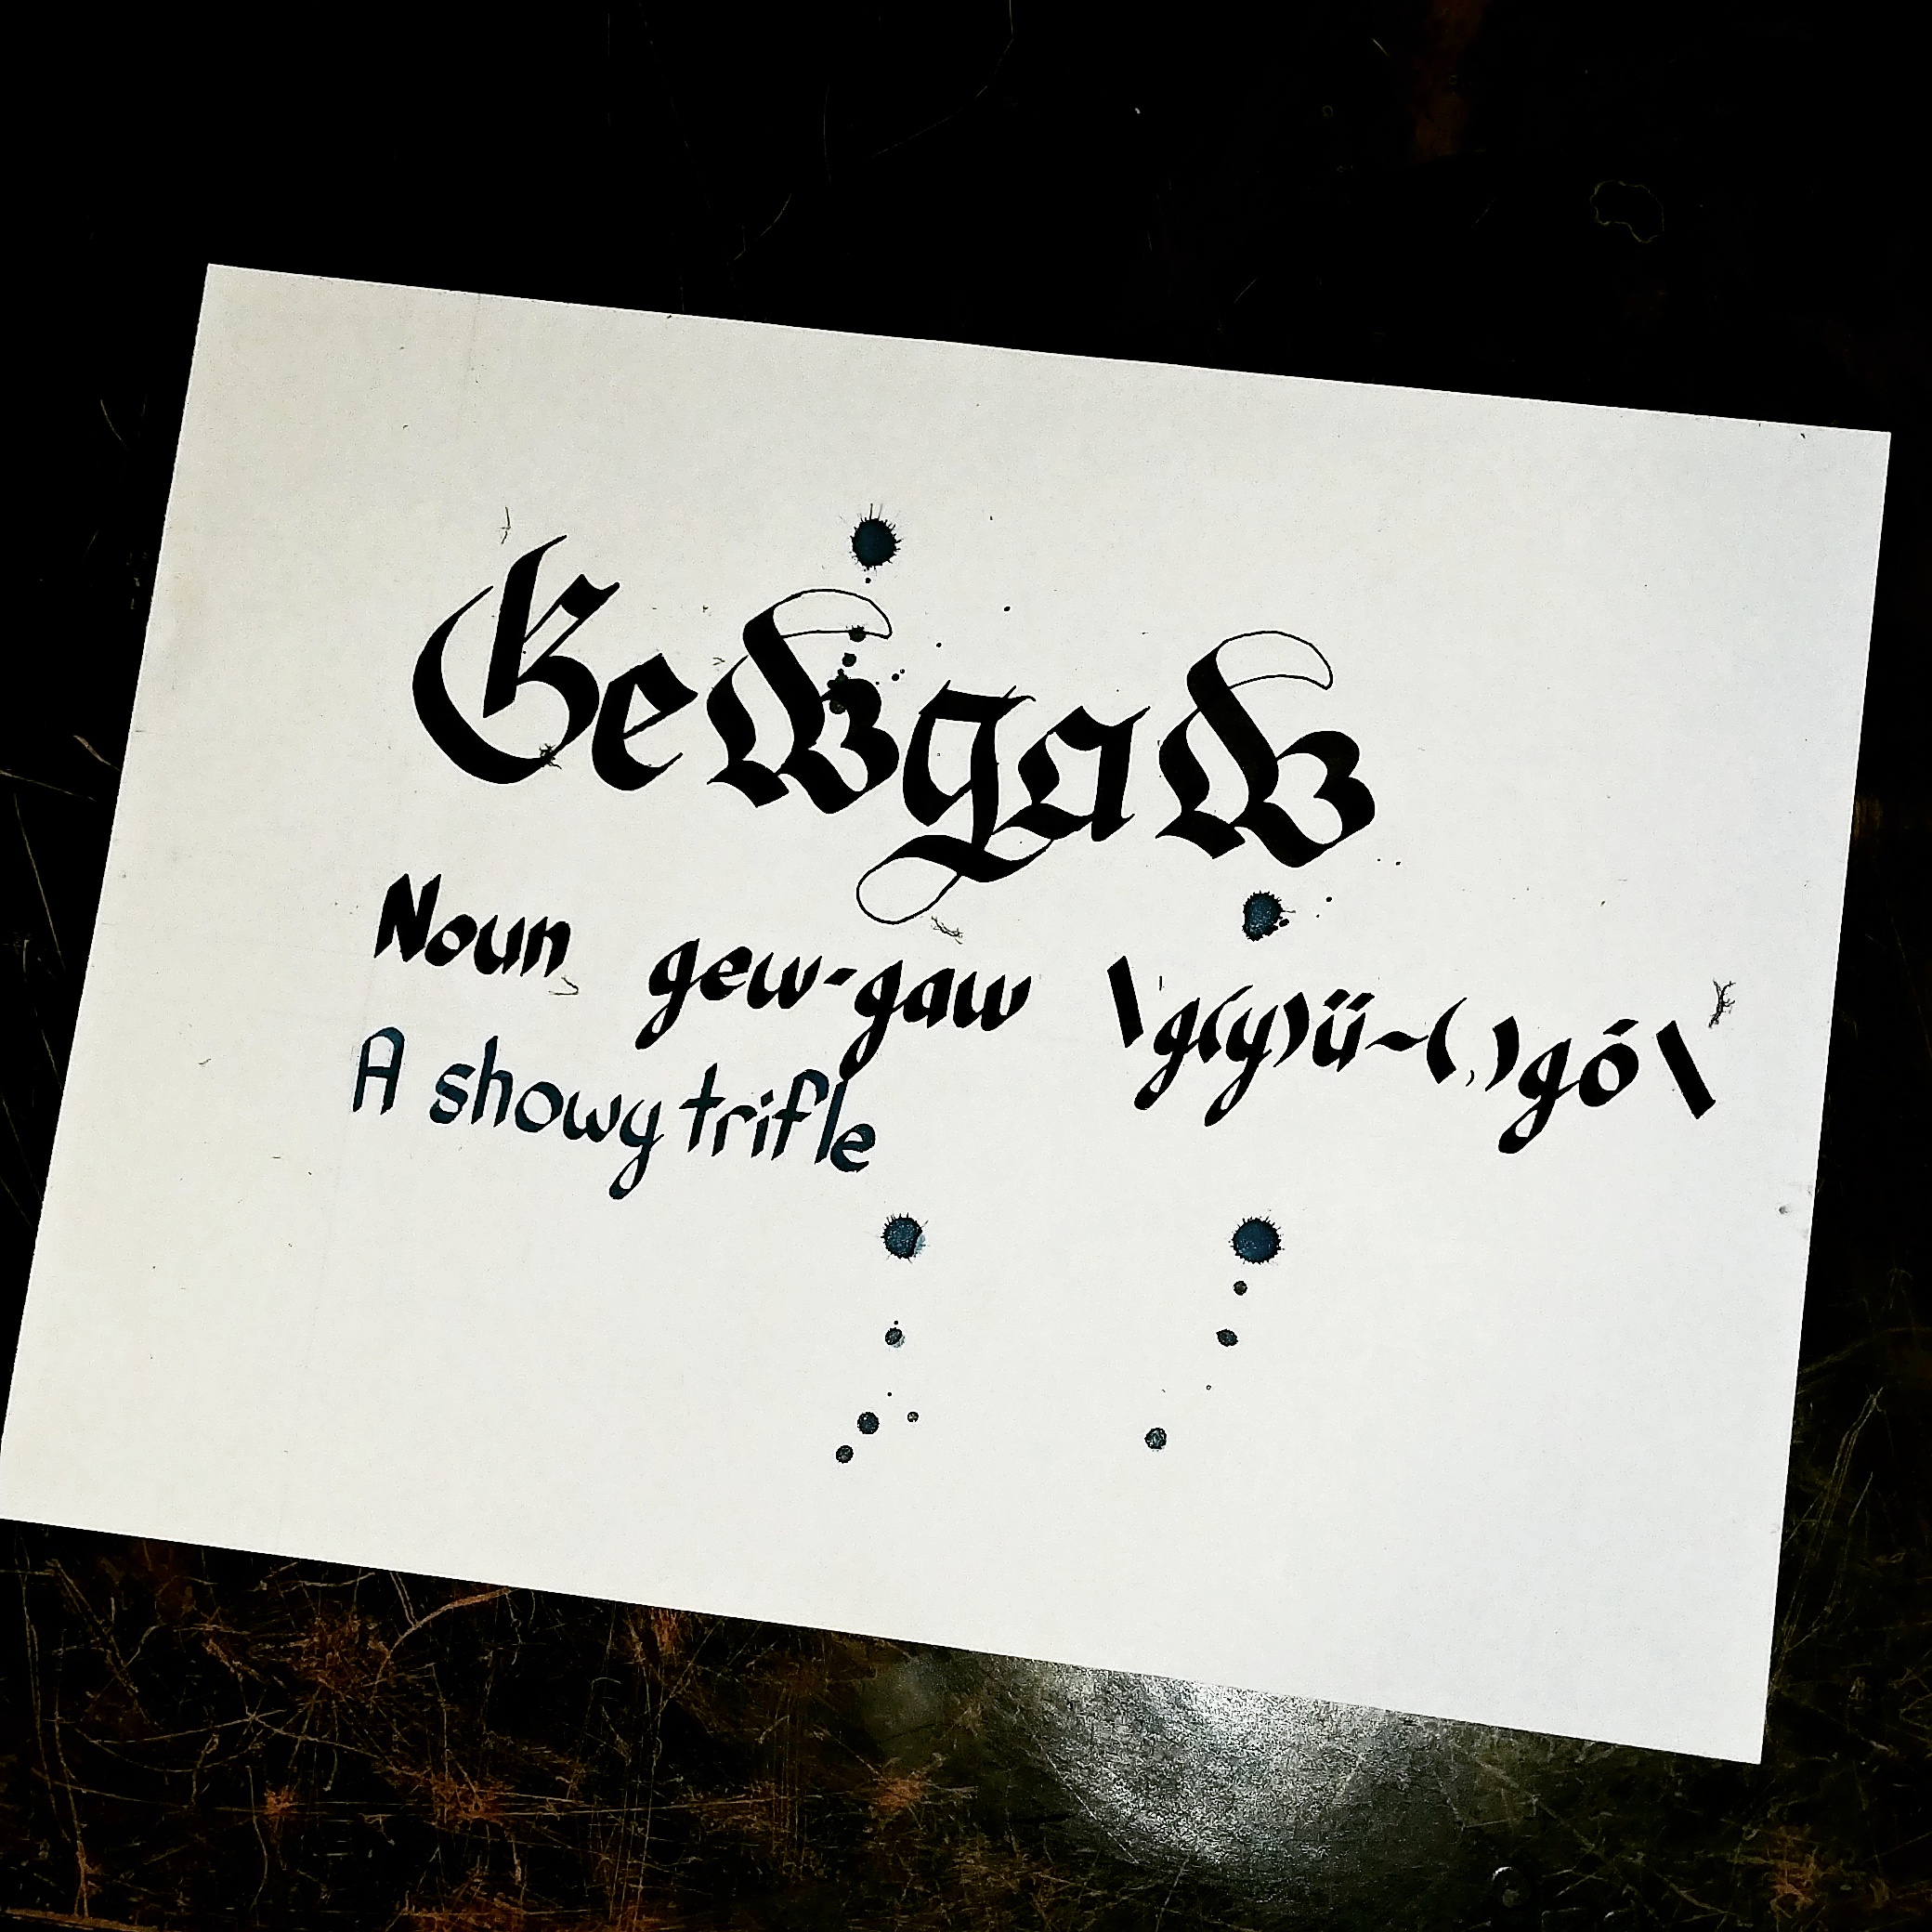 Gewgaw
Noun gew-gaw \ˈg(y)ü~(ˌ)gó\
A showy trifle